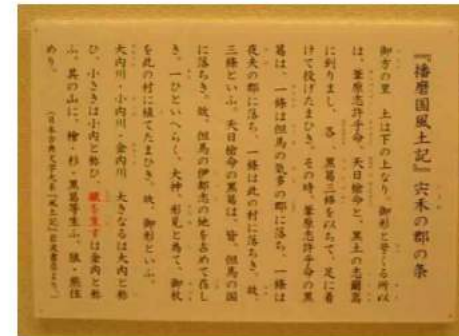 『播磨国風土記』宍禾の郡の条
御方の里　土は下の上なり。御形と号くる所以
は、葦原志許乎命、天日槍命と、黒土の志爾嵩
に到りまし、各、黒葛三條を以ちて、足に着
けて投げたまひき。その時、葦原志許乎命の黒
葛は、一條は但馬の気多の郡に落ち、一條は
夜夫の郡に落ち、一條は此の村に落ちき。故、
三條といふ。天日槍命の黒葛は、皆、但馬の国
に落ちき。故、但馬の伊都志の地を占めて在し
き。一ひといへらく、大神、形見と為て、御杖
を此の村に植てたまひき。故、御形といふ。
大内川・小内川・金内川　大きなるは大内と称
ひ、小さきは小内と称ひ、鐵を生すは金内と称
ふ。其の山に、檜・杉・黒葛等生ふ。狼・熊住
めり。　（日本古典文学大系『風土記』岩波書店より。）